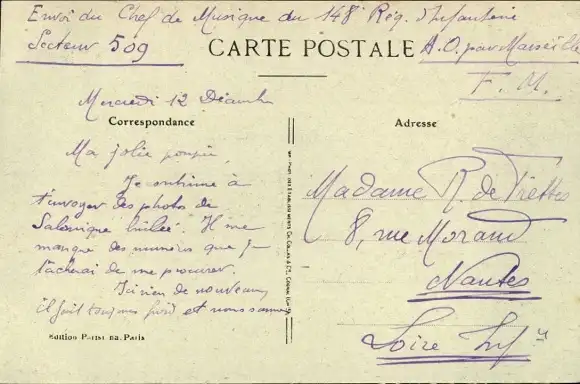 Envoi du Chef de Musique du 148e Rég. d'Infanterie
Secteur 509
CARTE POSTALE
A.O. par Marseille
F. M.
Mercredi 12 Décembre
Correspondance
Adresse
Ma jolie poupée,
Je continue à
t'envoyer des photos de
Salonique brûlée. Il me
manque des numéros que je
tâcherai de me procurer.
Ici rien de nouveau,
il fait toujours froid et nous sommes
Madame R. de Frettes
8, rue Morand
Nantes
Loire Infre
Edition Parisiana, Paris